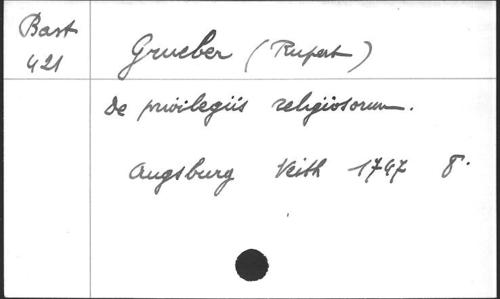 Bast
421
Grueber (Rupert)
De privilegiis religiosorum.
Augsburg Veith 1747 8°